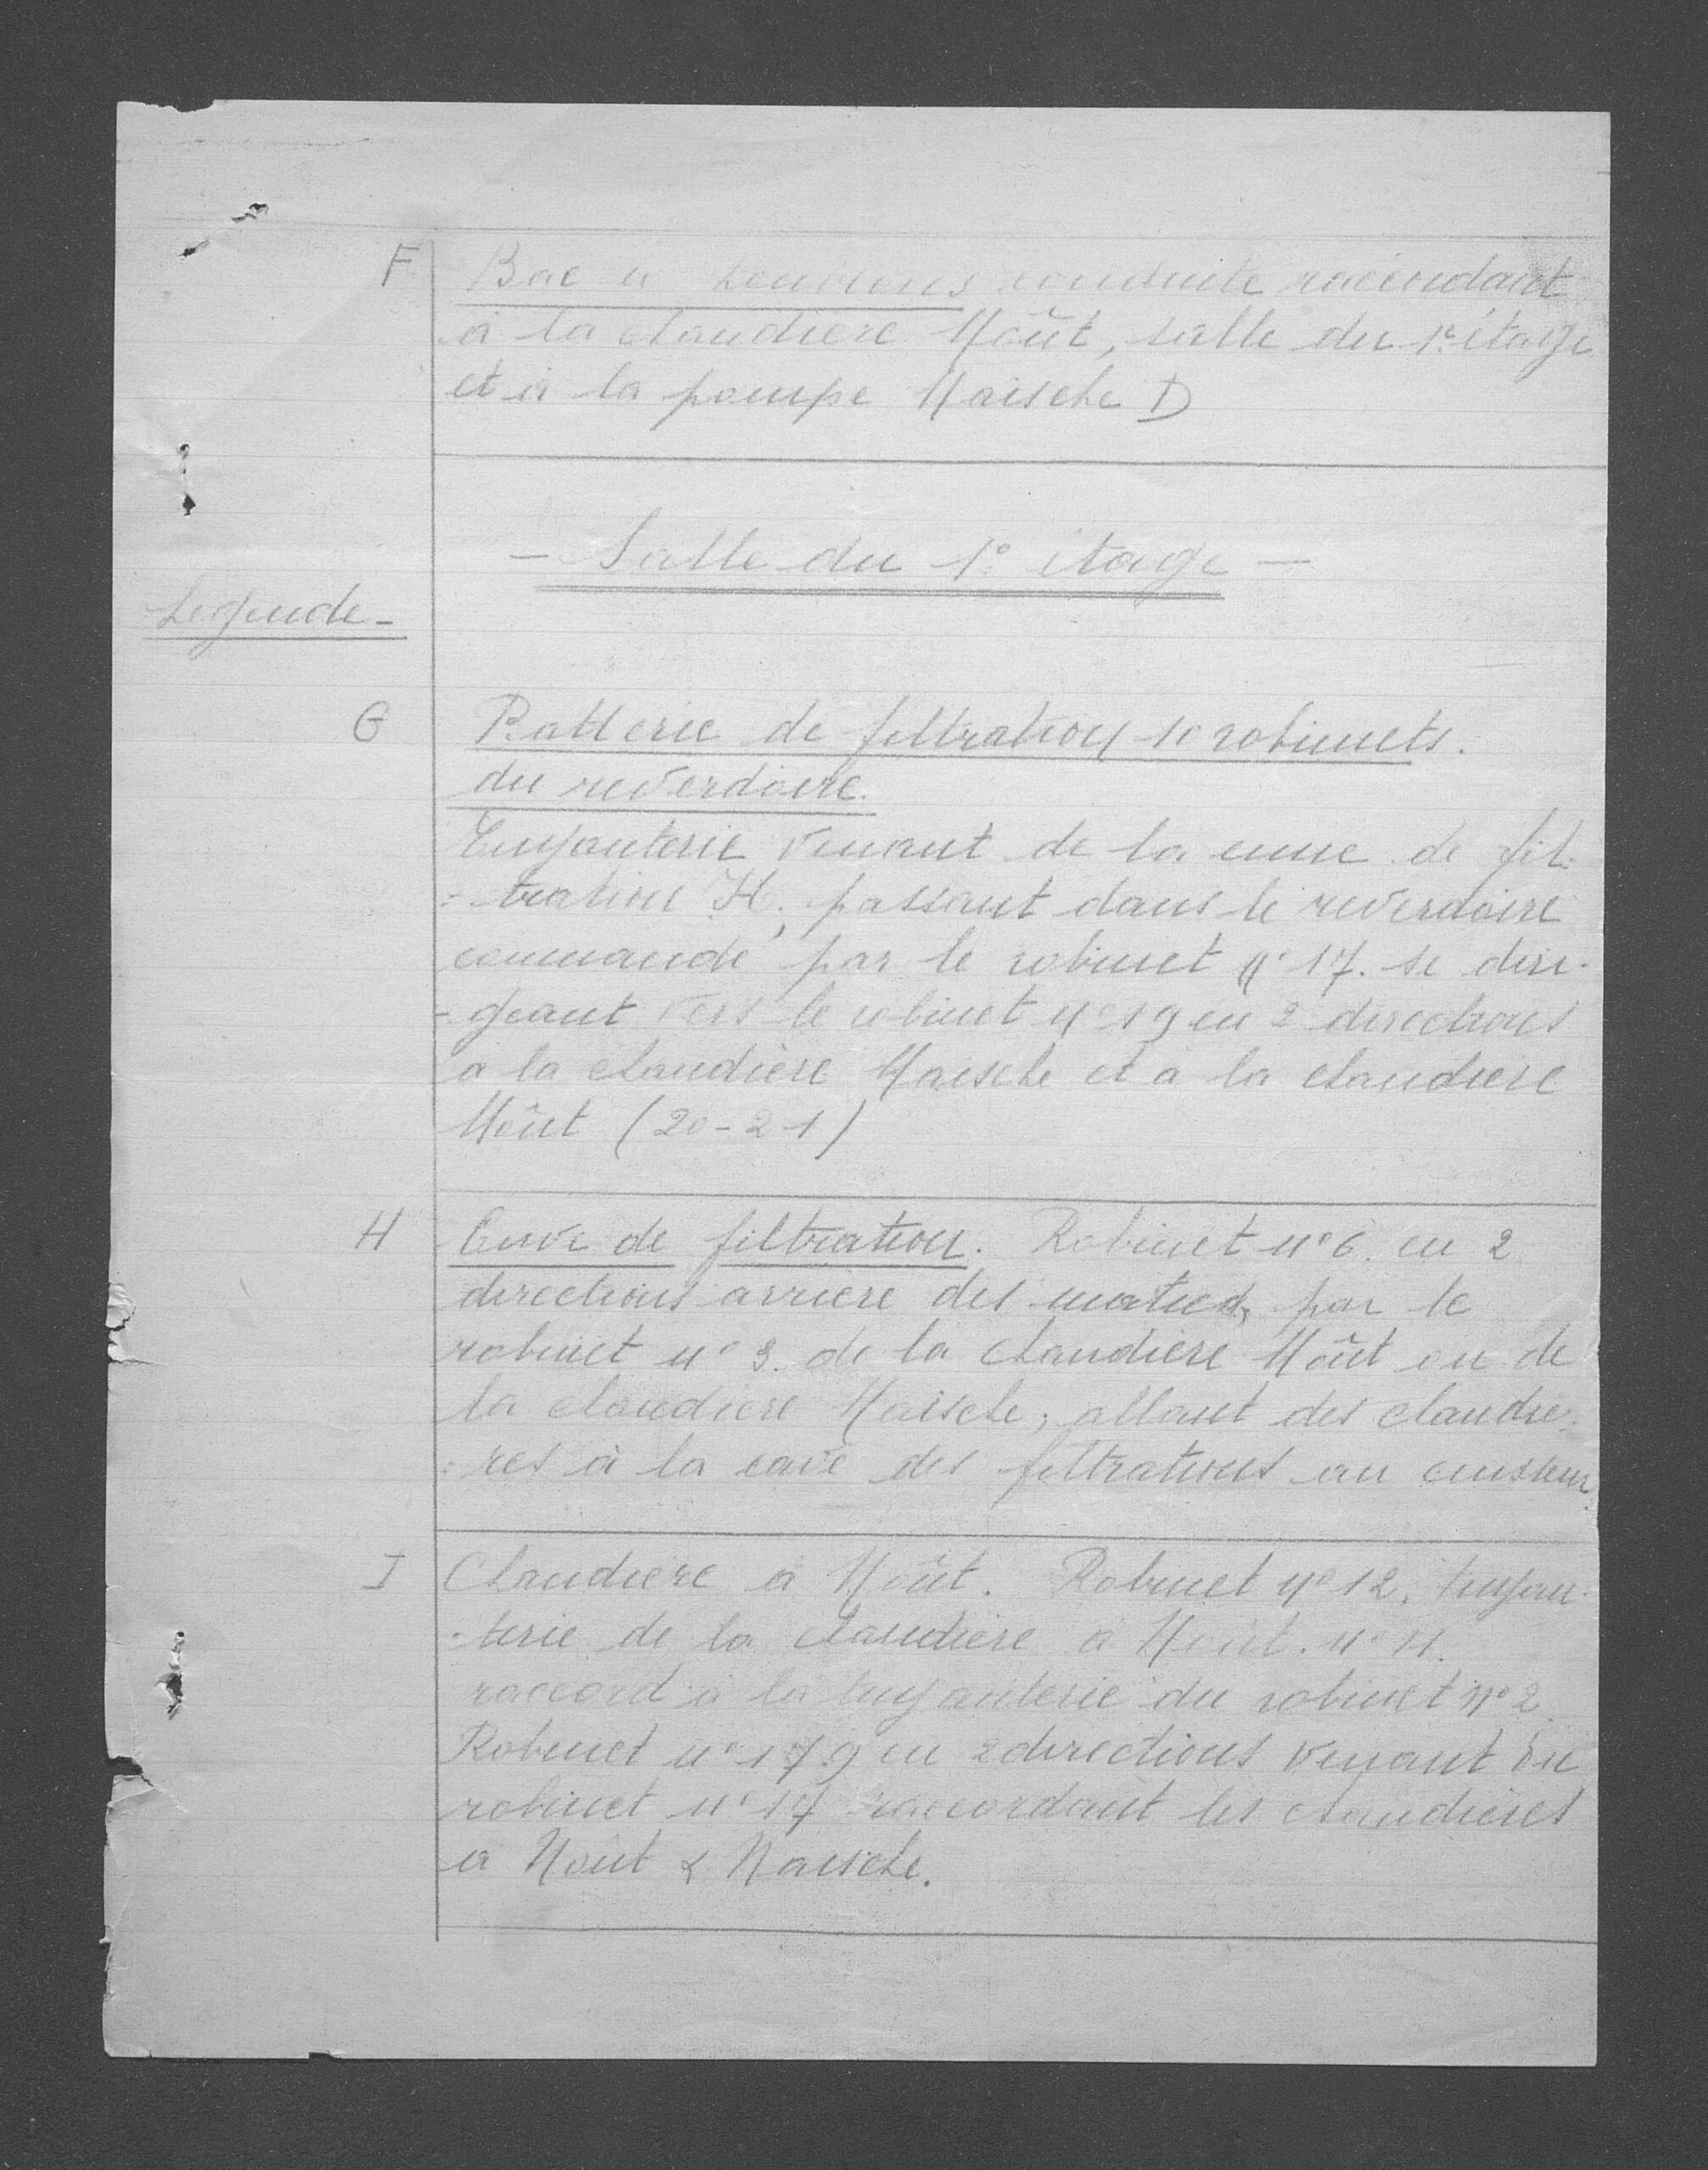 F Bac à houblons conduite racordant
à la chaudière Moût, salle du 1r étage
et à la pompe Maische D
- Salle du 1° étage -
Légende -
G Batterie de filtration 10 robinets.
du reverdoire.
Tuyauterie venant de la cuve de fil-
-tration H, passant dans le reverdoire
commandé par le robinet n° 17. se diri-
-geant vers le robinet n° 19 en 2 directions
a la chaudière Maische et a la chaudière
Moût (20-21)
H Cuve de filtration. Robinet n° 6. en 2
directions arrière des par le
robinet n° 3. de la chaudière Moût ou de
la chaudière Maische, allant des chaudie-
-res à la cave des filtrations au
I Chaudière à Moût. Robinet n° 12. tuyau-
-terie de la chaudière à Moût. n° 11.
raccord à la tuyauterie du robinet n° 2.
Robinet n° 19 en 2 directions venant du
robinet n° 17 raccordant les chaudières
à Moût & Maische.